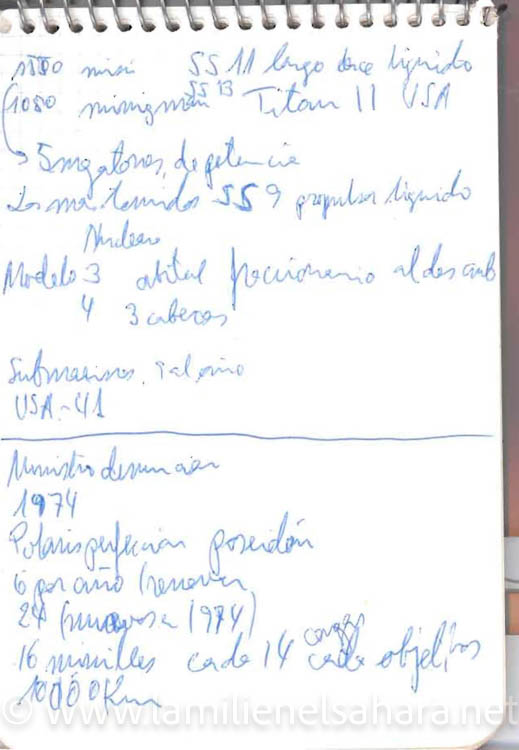 1500 misi SS 11 largo alcance liquido
1050 minuteman SS 13 Titan II USA
5 megatones, de potencia
Los mas temidos SS 9 propulsor liquido
Nuclear
Modelo 3 orbital fraccionario al descub
4 3 cabezas
Submarinos. al año
USA - 41
Ministro denuncian
1974
Polaris perfeccion poseidón
6 por año (renovar
24 1974)
16 misiles cada 14 cargas cada objetivos
10000 Km
© www.lamilienelsahara.net